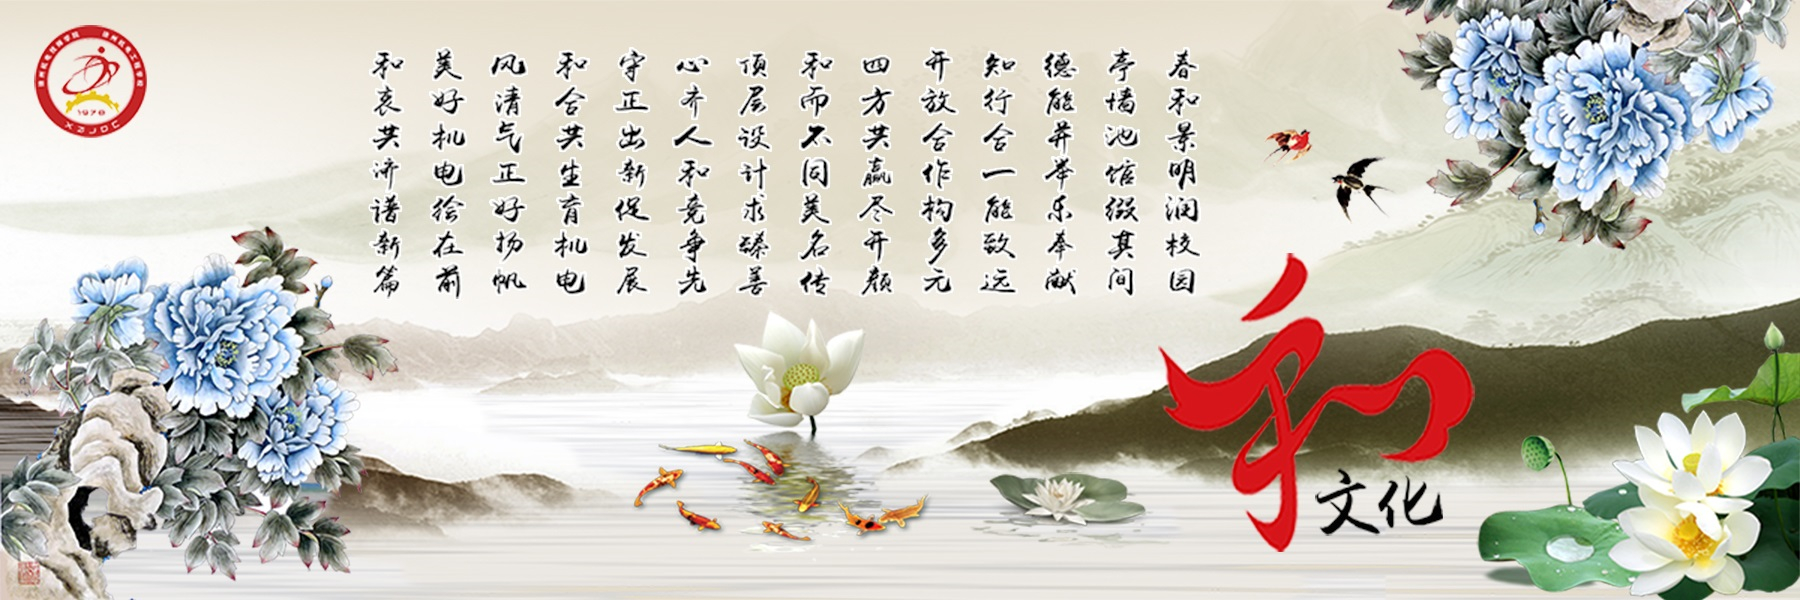 春和景明润校园
亭墙池馆缀其间
德能并举乐奉献
知行合一能致远
开放合作构多元
四方共赢尽开颜
和而不同美名传
顶层设计求臻善
心齐人和竞争先
守正出新促发展
和合共生育机电
风清气正好扬帆
美好机电绘在前
和衷共济谱新篇
和
文化
徐州机电技师学院 徐州机电工程学校
1978
XZJDC